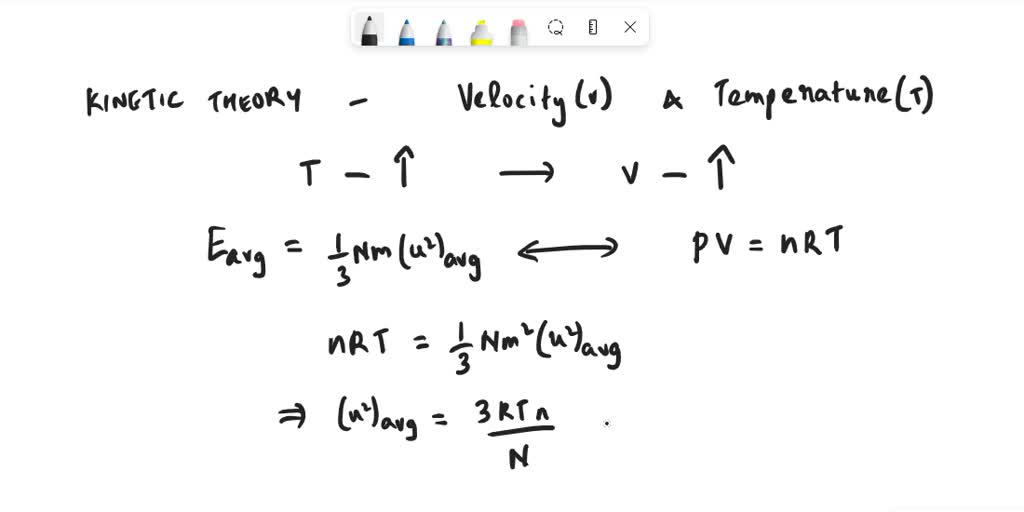 KINETIC THEORY - Velocity (v) & Temperature (T)
T - ↑ → V - ↑
E_avg = 1/3 Nm (u²)avg ⟷ PV = nRT
nRT = 1/3 Nm² (u²)avg
⇒ (u²)avg = 3RTn/N